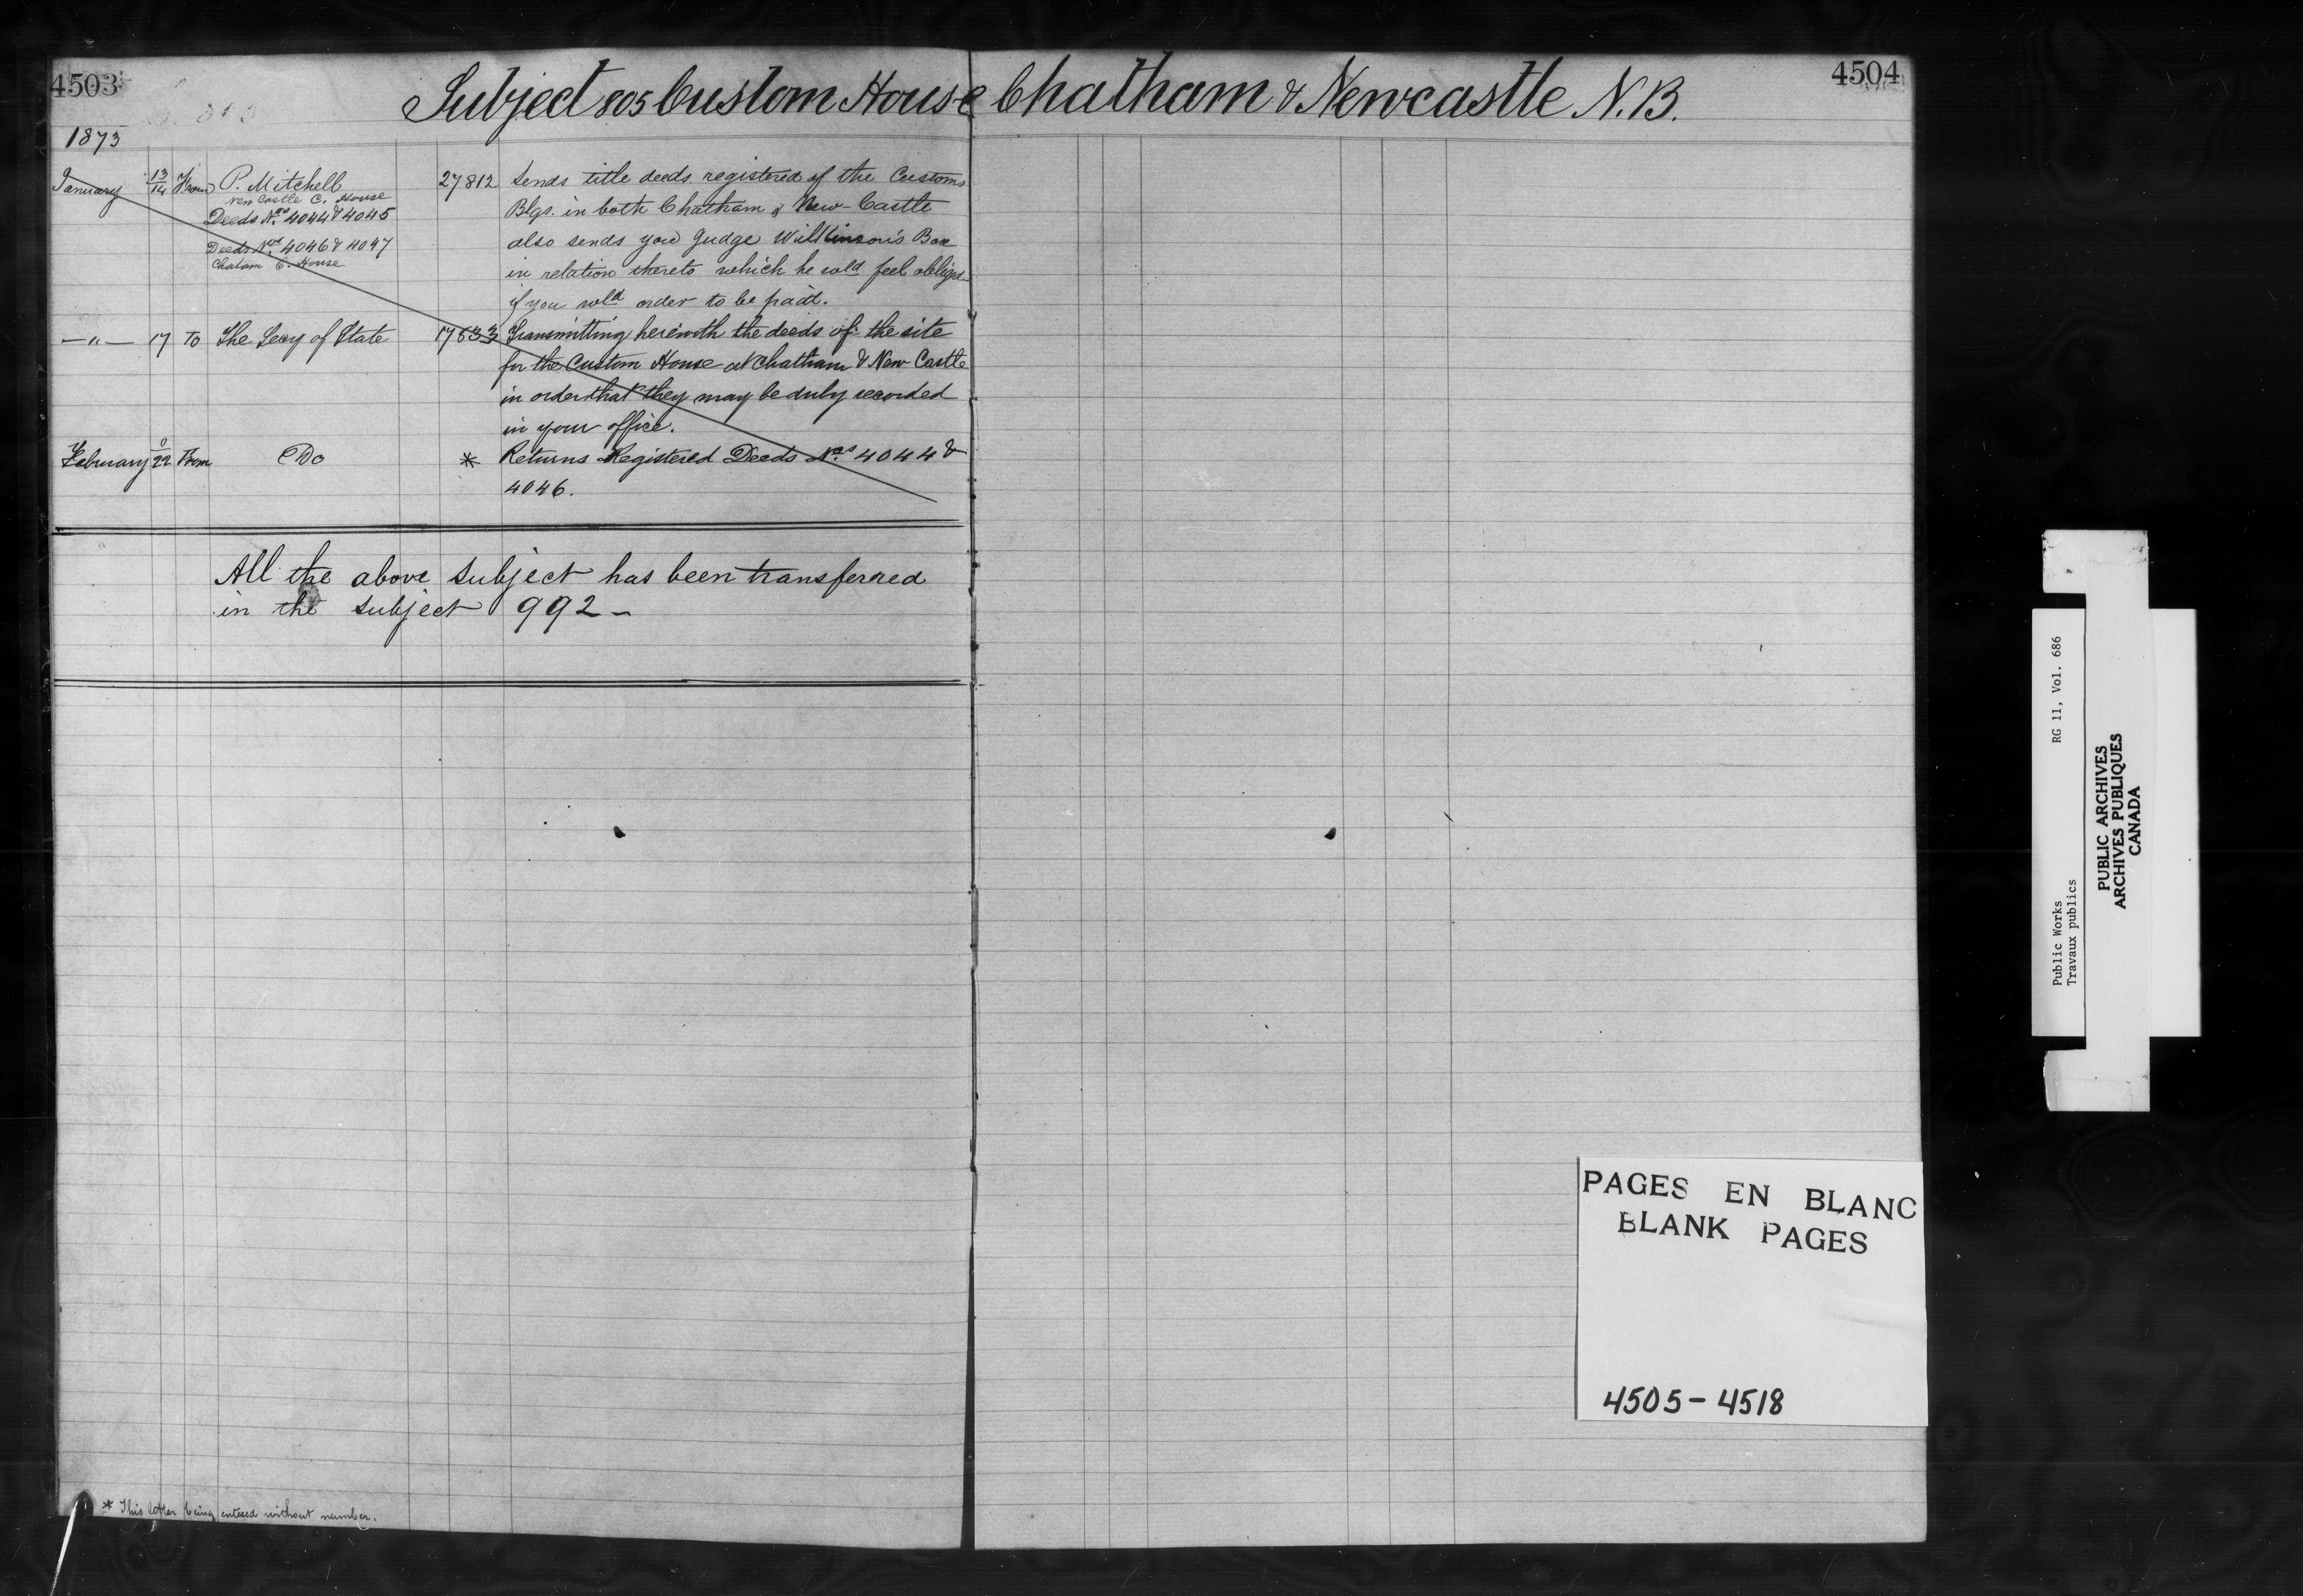 4503
4504
Subject 805 Custom House Chatham & Newcastle N.B.
1873
January 13/14 From P. Mitchell 27812 Sends title deeds registered of the Customs
New Castle C. House
Deeds Nos 4044 & 4045 Blgs. in both Chatham & New-Castle
Deeds Nos 4046 & 4047 also sends you Judge Willkinson's
Chatam C. House in relation thereto which he wld feel obliged
if you wld order to be paid.
—"— 17 To The Secy of State 17633 Transmitting herewith the deeds of the site
for the Custom House at Chatham & New Castle
in order that they may be duly recorded
in your office.
February 22 From Do * Returns Registered Deeds Nos 4044 &
4046.
All the above subject has been transferred
in the subject 992 –
* This letter being entered without number.
PAGES EN BLANC
BLANK PAGES
4505-4518
Public Works RG 11, Vol. 686
Travaux publics
PUBLIC ARCHIVES
ARCHIVES PUBLIQUES
CANADA